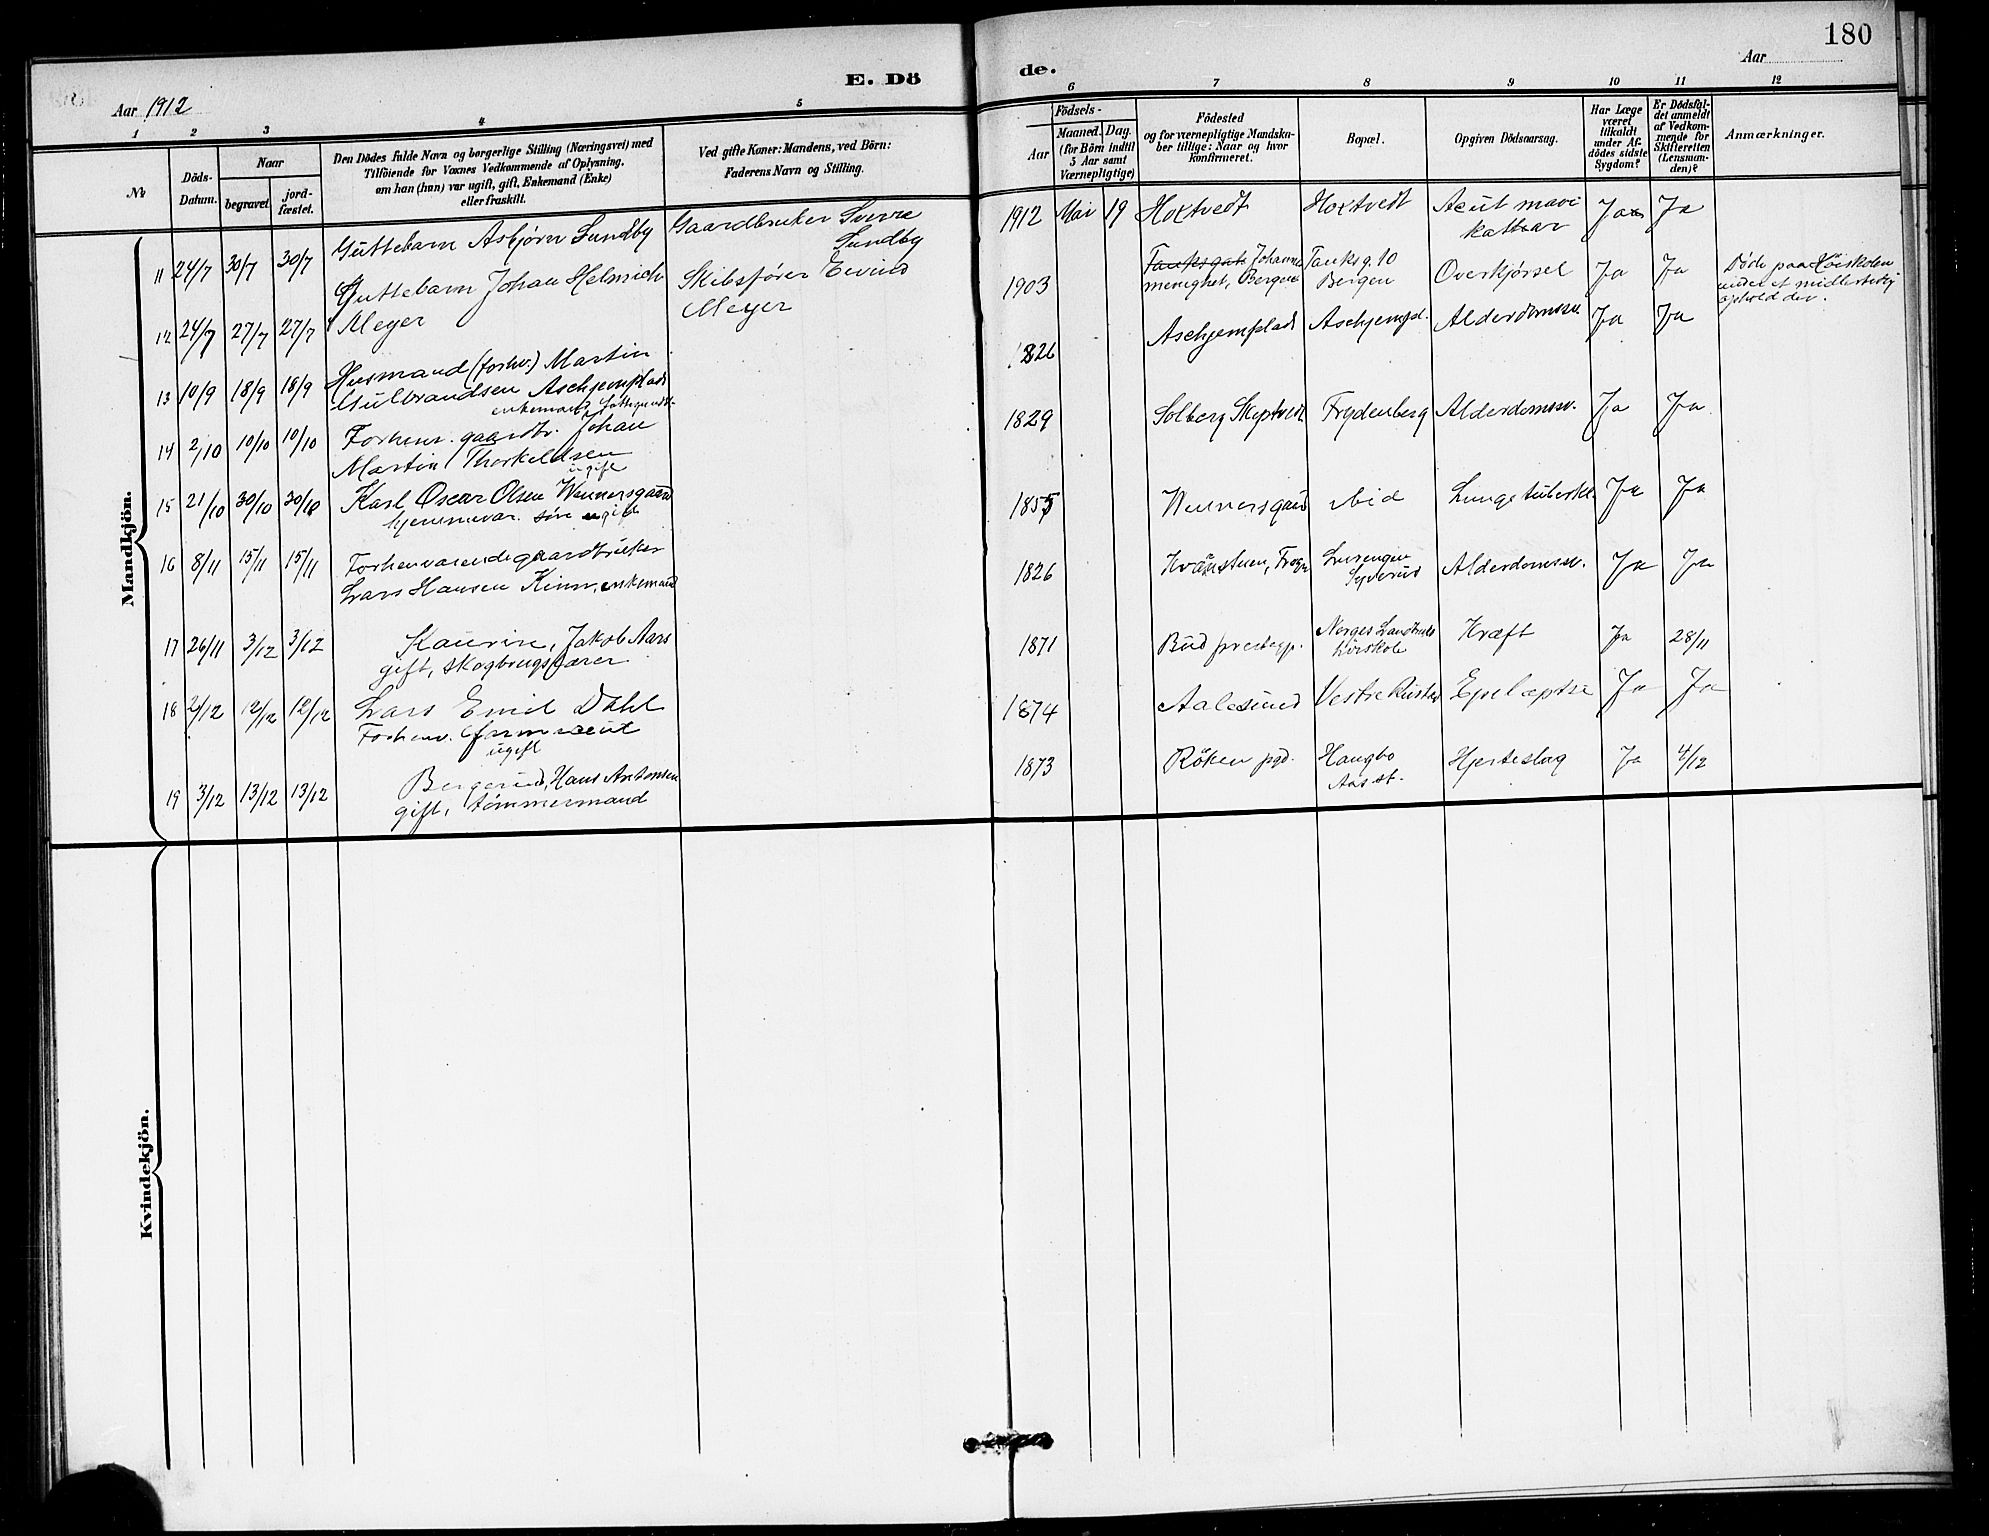 180
E. Dö
de.
Aar 1912
Aar
1 2 3 4 5 6 7 8 9 10 11 12
№
Döds-
Datum.
Naar
begravet.
jord-
fæstet.
Den Dödes fulde Navn og borgerlige Stilling (Næringsvei) med
Tilföiende for Voxnes Vedkommende af Oplysning,
om han (hun) var ugift, gift, Enkemand (Enke)
eller fraskilt.
Ved gifte Koner: Mandens, ved Börn:
Faderens Navn og Stilling.
Födsels-
Aar
Maaned. Dag.
(for Börn indtil
5 Aar samt
Værnepligtige)
Födested
og for værnepligtige Mandska-
ber tillige: Naar og hvor
konfirmeret.
Bopæl.
Opgiven Dödsaarsag.
Har Læge
været
tilkaldt
under Af-
dödes sidste
Sygdom?
Er Dödsfal-
det anmeldt
af Vedkom-
mende for
Skifteretten
(Lensman-
den)?
Anmærkninger.
Mandkjön.
11 24/7 30/7 30/7 Guttebarn Asbjørn Sundby Gaardbruker Sverre
Sundby
1912 Mai 19 Hoxtvedt Hoxtvedt Acut mave
kattar Ja Ja
12 24/7 27/7 27/7 Guttebarn Johan Helmich
Meyer
Skibsfører Eivind
Meyer
1903 Tanksgate Johannes
menighet, Bergen Tanksg. 10
Bergen Overkjørsel Ja Ja Døde paa Høiskolen
under et midlertidig
ophold der.
13 10/9 18/9 18/9 Husmand (forhv.) Martin
Gulbrandsen Aschjemplads
enkemand,
1826 Aschjemplads Aschjempl. Alderdomssv. Ja Ja
14 2/10 10/10 10/10 Forhenv. gaardbr. Johan
Martin Thorkeldsen
ugift
1829 Solberg Skiptvedt Frydenberg Alderdomssv. Ja Ja
15 21/10 30/10 30/10 Karl Oscar Olsen Wennersgaard
hjemmevær. søn ugift
1855 Wennersgaard ibid Lungetuberkl. Ja Ja
16 8/11 15/11 15/11 Forhenværende gaardbruker
Lars Hansen Kinn, enkemand
1826 Kvänstuen, Frogn
Syverud Alderdomssv. Ja Ja
17 26/11 3/12 3/12 Kaurin, Jakob Aars
gift, skogbrugslærer
1871 Bud prestegj. Norges Landbruks
høiskole Kræft Ja 28/11
18 2/12 12/12 12/12 Lars Emil Dahl
Forhenv.
ugift
1874 Aalesund Vestre Rustad Epelæptse Ja Ja
19 3/12 13/12 13/12 Bergerud, Hans Antonsen
gift, tømmermand
1873 Röken pgd. Haugbo
Aas st. Hjerteslag Ja 4/12
Kvindekjön.